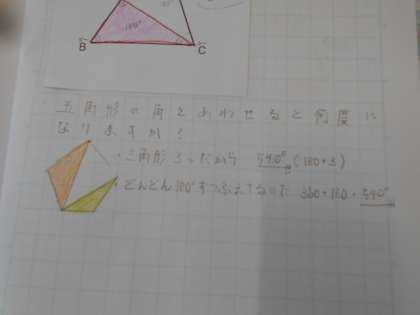 180°
B
C
五角形の角をあわせると何度に
なりますか?
・三角形3つだから 540° (180×3)
・どんどん180°ずつふえてるので 360+180=540°